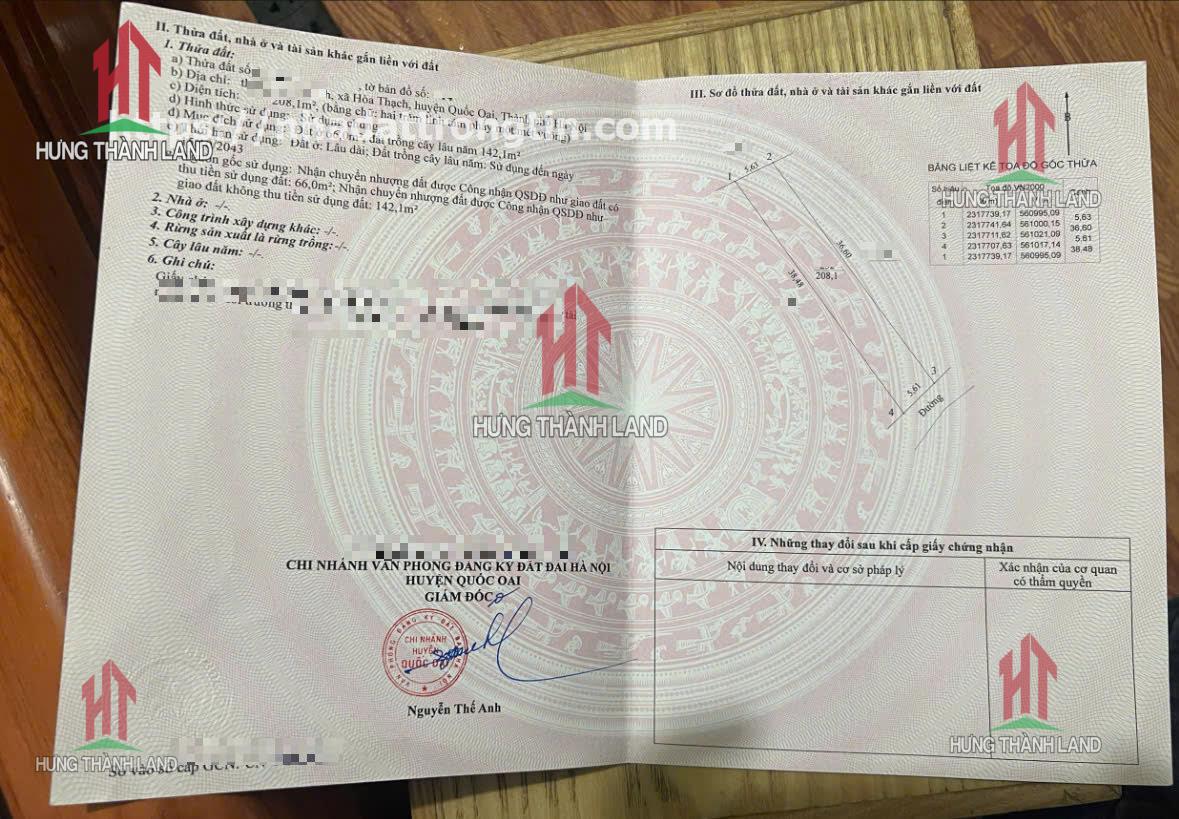 II. Thửa đất, nhà ở và tài sản khác gắn liền với đất
1. Thửa đất:
a) Thửa đất số , tờ bản đồ số:
b) Địa chỉ: xã Hòa Thạch, huyện Quốc Oai, Thành phố Hà Nội
c) Diện tích: 208,1m², (bằng chữ: hai trăm linh tám phẩy một mét vuông)
d) Hình thức sử dụng: Sử dụng chung
đ) Mục đích sử dụng đất trồng cây lâu năm 142,1m²
e) Thời hạn sử dụng: Đất ở: Lâu dài; Đất trồng cây lâu năm: Sử dụng đến ngày
/2043
gốc sử dụng: Nhận chuyển nhượng đất được Công nhận QSDĐ như giao đất có
thu tiền sử dụng đất: 66,0m²; Nhận chuyển nhượng đất được Công nhận QSDĐ như
giao đất không thu tiền sử dụng đất: 142,1m²
2. Nhà ở: -/-.
3. Công trình xây dựng khác: -/-.
4. Rừng sản xuất là rừng trồng:-/-.
5. Cây lâu năm: -/-.
6. Ghi chú:
CHI NHÁNH VĂN PHÒNG ĐĂNG KÝ ĐẤT ĐAI HÀ NỘI
HUYỆN QUỐC OAI
GIÁM ĐỐC
VĂN PHÒNG ĐĂNG KÝ ĐẤT ĐAI HÀ NỘI
CHI NHÁNH
HUYỆN
QUỐC OAI
Nguyễn Thế Anh
Số vào sổ cấp GCN:
III. Sơ đồ thửa đất, nhà ở và tài sản khác gắn liền với đất
B
BẢNG LIỆT KÊ TỌA ĐỘ GÓC THỬA
Số hiệu Tọa độ VN2000 Cạnh
1 2317739,17 560995,09
5,63
2 2317741,64 561000,15
36,60
3 2317711,62 561021,09
5,61
4 2317707,63 561017,14
38,48
1 2317739,17 560995,09
1 5,63 2
36,60
38,48
208,1
3
5,61
4
Đường
IV. Những thay đổi sau khi cấp giấy chứng nhận
Nội dung thay đổi và cơ sở pháp lý
Xác nhận của cơ quan
có thẩm quyền
HƯNG THÀNH LAND
HƯNG THÀNH LAND
HƯNG THÀNH LAND
HƯNG THÀNH LAND
HƯNG THÀNH LAND